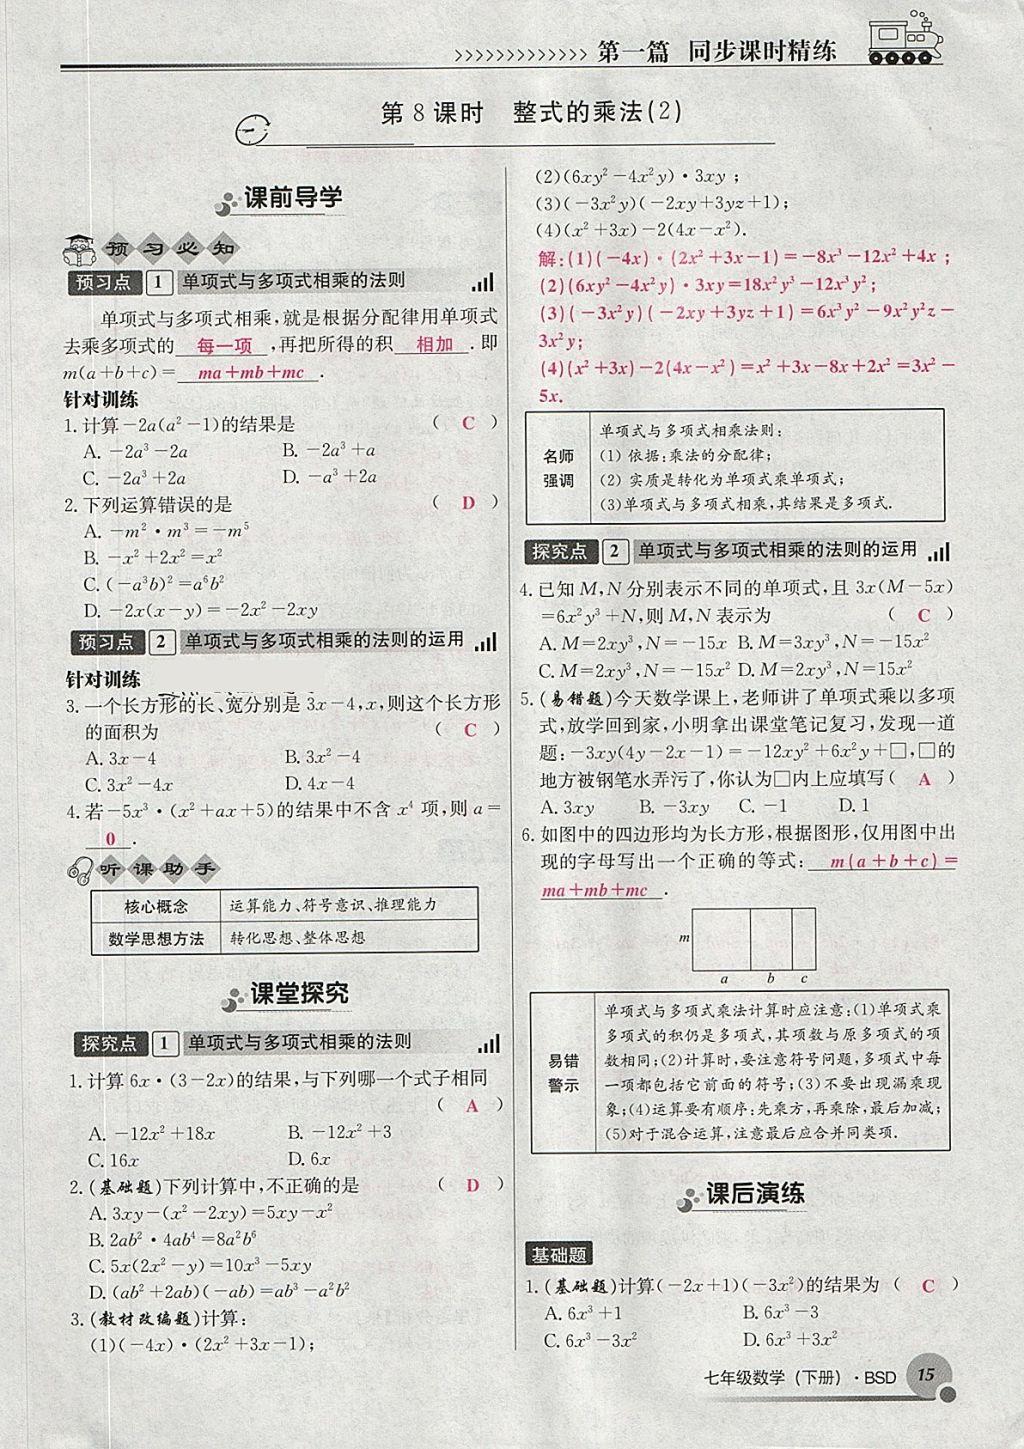 第一篇 同步课时精练
第8课时 整式的乘法(2)
课前导学
预习必知
预习点 1 单项式与多项式相乘的法则
单项式与多项式相乘,就是根据分配律用单项式
去乘多项式的 每一项 ,再把所得的积 相加 .即
m(a+b+c)= ma+mb+mc .
针对训练
1.计算-2a(a²-1)的结果是 ( C )
A. -2a³-2a B. -2a³+a
C. -2a³+2a D. -a³+2a
2.下列运算错误的是 ( D )
A. -m²·m³=-m⁵
B. -x²+2x²=x²
C. (-a³b)²=a⁶b²
D. -2x(x-y)=-2x²-2xy
预习点 2 单项式与多项式相乘的法则的运用
针对训练
3.一个长方形的长、宽分别是 3x-4,x,则这个长方形
的面积为 ( C )
A. 3x-4 B. 3x²-4
C. 3x²-4x D. 4x-4
4.若-5x³·(x²+ax+5)的结果中不含 x⁴ 项,则 a=
0 .
听课助手
核心概念 运算能力、符号意识、推理能力
数学思想方法 转化思想、整体思想
课堂探究
探究点 1 单项式与多项式相乘的法则
1.计算 6x·(3-2x)的结果,与下列哪一个式子相同
( A )
A. -12x²+18x B. -12x²+3
C. 16x D. 6x
2.(基础题)下列计算中,不正确的是 ( D )
A. 3xy-(x²-2xy)=5xy-x²
B. 2ab²·4ab⁴=8a²b⁶
C. 5x(2x²-y)=10x³-5xy
D. (ab²+2ab)(-ab)=ab³-a²b²
3.(教材改编题)计算:
(1)(-4x)·(2x²+3x-1);
(2)(6xy²-4x²y)·3xy;
(3)(-3x²y)(-2xy+3yz+1);
(4)(x²+3x)-2(4x-x²).
解:(1)(-4x)·(2x²+3x-1)=-8x³-12x²+4x;
(2)(6xy²-4x²y)·3xy=18x²y³-12x³y²;
(3)(-3x²y)(-2xy+3yz+1)=6x³y²-9x²y²z-
3x²y;
(4)(x²+3x)-2(4x-x²)=x²+3x-8x+2x²=3x²-
5x.
名师
强调
单项式与多项式相乘法则:
(1) 依据:乘法的分配律;
(2) 实质是转化为单项式乘单项式;
(3)单项式与多项式相乘,其结果是多项式.
探究点 2 单项式与多项式相乘的法则的运用
4.已知 M,N 分别表示不同的单项式,且 3x(M-5x)
=6x²y³+N,则 M,N 表示为 ( C )
A. M=2xy³,N=-15x B. M=3xy³,N=-15x²
C. M=2xy³,N=-15x² D. M=2xy³,N=15x²
5.(易错题)今天数学课上,老师讲了单项式乘以多项
式,放学回到家,小明拿出课堂笔记复习,发现一道
题:-3xy(4y-2x-1)=-12xy²+6x²y+□,□的
地方被钢笔水弄污了,你认为□内上应填写( A )
A. 3xy B. -3xy C. -1 D. 1
6.如图中的四边形均为长方形,根据图形,仅用图中出
现的字母写出一个正确的等式: m(a+b+c)=
ma+mb+mc .
m
a b c
易错
警示
单项式与多项式乘法计算时应注意:(1)单项式乘
多项式的积仍是多项式,其项数与原多项式的项
数相同;(2)计算时,要注意符号问题,多项式中每
一项都包括它前面的符号;(3)不要出现漏乘现
象;(4)运算要有顺序:先乘方,再乘除,最后加减;
(5)对于混合运算,注意最后应合并同类项.
课后演练
基础题
1.(基础题)计算(-2x+1)(-3x²)的结果为 ( C )
A. 6x³+1 B. 6x³-3
C. 6x³-3x² D. 6x³+3x²
七年级数学(下册)·BSD 15